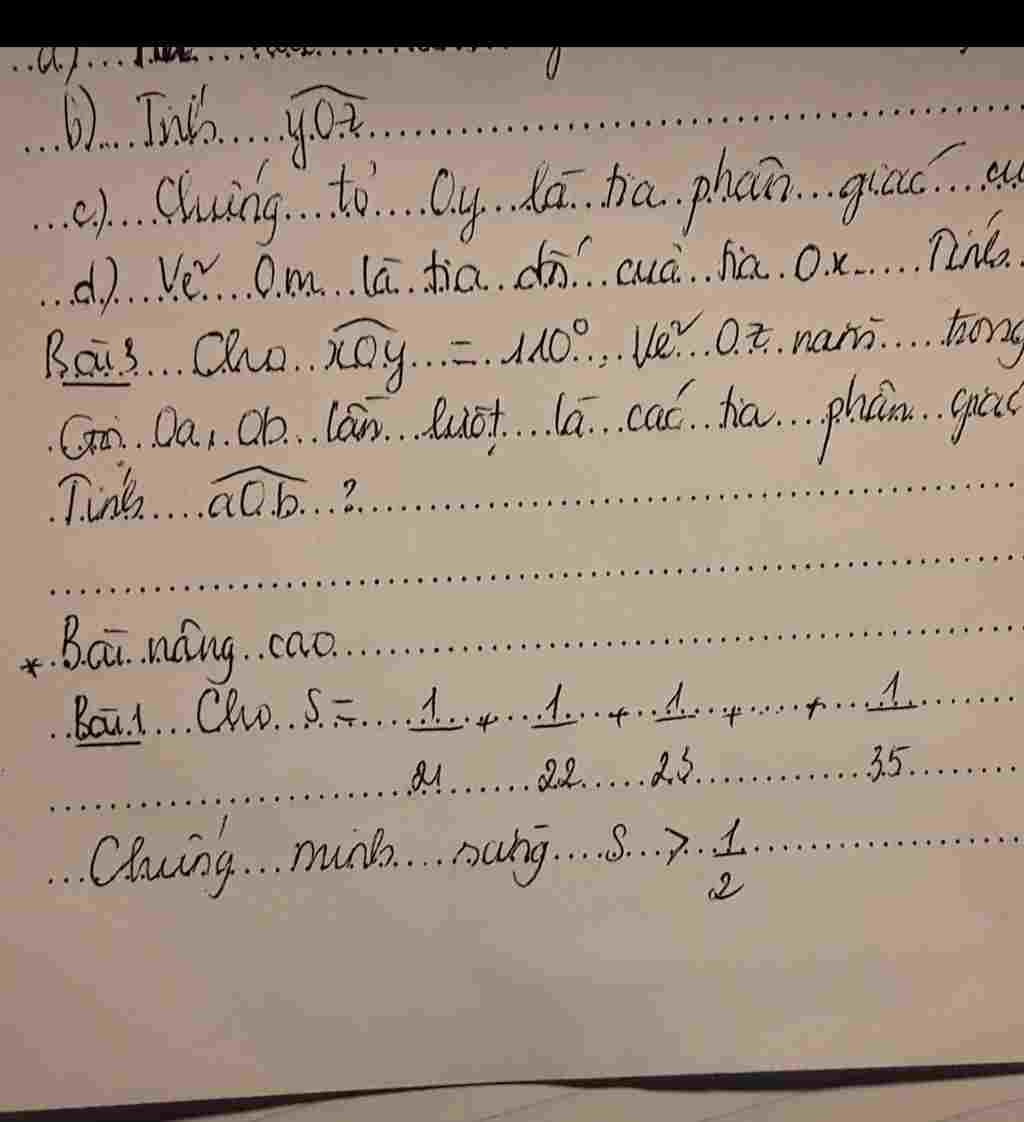 a)
b) Tính yOz
c) Chứng tỏ Oy là tia phân giác
d) Vẽ Om là tia đối của tia Ox. Tính
Bài 3 Cho xOy = 110°, Vẽ Oz nằm trong
Gọi Oa, Ob lần lượt là các tia phân giác
Tính aOb ?
* Bài nâng cao
Bài 1 Cho S = 1/21 + 1/22 + 1/23 + ... + 1/35
Chứng minh rằng S > 1/2